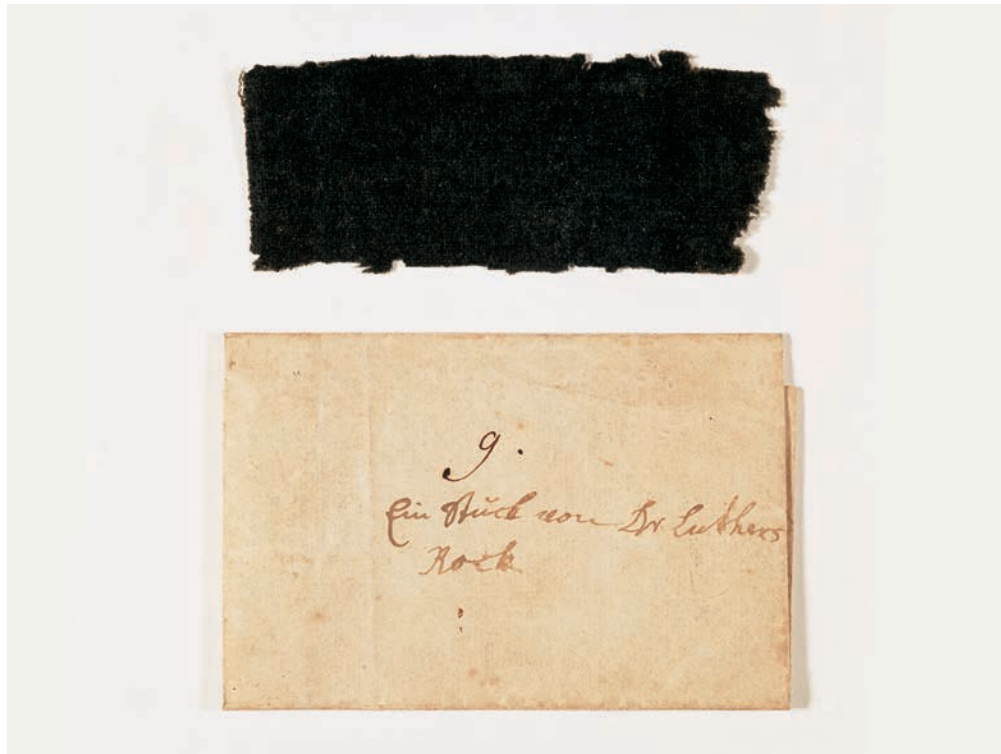 9.
Ein Stück von Dr Luthers
Rock